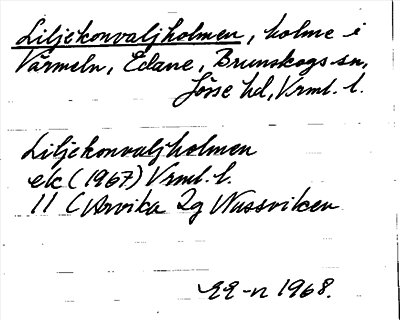 Liljekonvaljholmen, holme i
Värmeln, Edane, Brunskogs sn,
Jösse hd, Vrml. l.
Liljekonvaljholmen
ek (1967) Vrml. l.
11 C Arvika 2g Nussviken
1968.